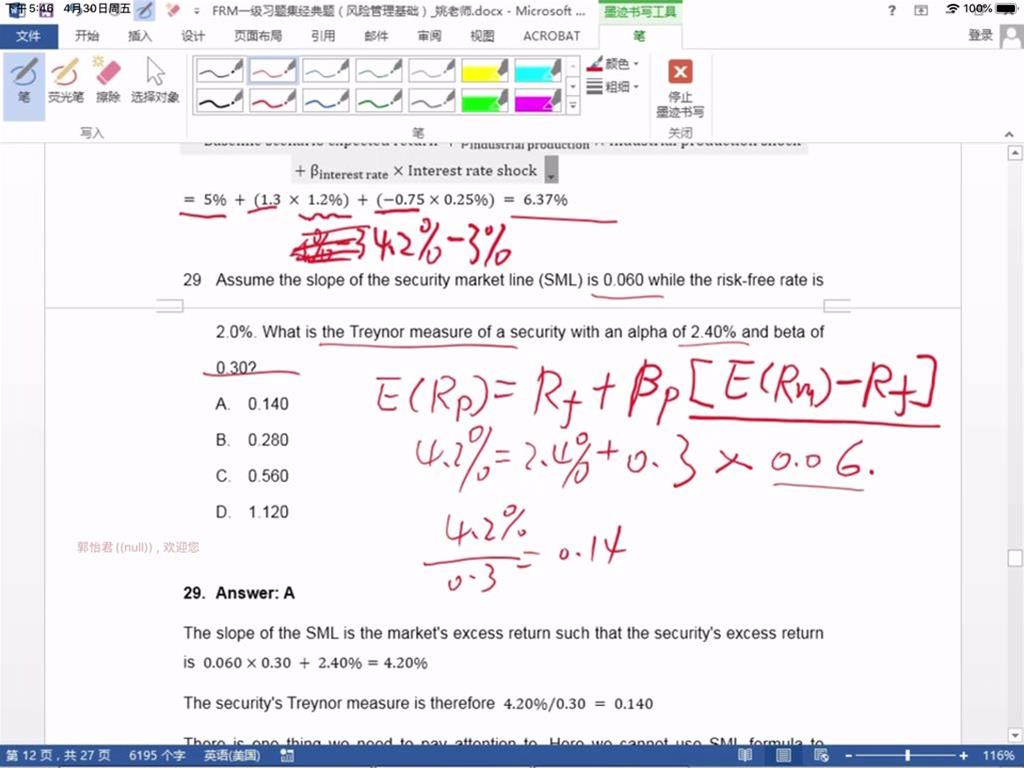 下午5:46 4月30日周五
FRM一级习题集经典题（风险管理基础）_姚老师.docx - Microsoft ...
墨迹书写工具
100%
文件 开始 插入 设计 页面布局 引用 邮件 审阅 视图 ACROBAT 笔 登录
笔 荧光笔 擦除 选择对象
颜色
粗细
停止
墨迹书写
写入 笔 关闭
Baseline scenario expected return + βindustrial production × Industrial production shock
+ βinterest rate × Interest rate shock
= 5% + (1.3 × 1.2%) + (−0.75 × 0.25%) = 6.37%
4.2%-3%
29 Assume the slope of the security market line (SML) is 0.060 while the risk-free rate is
2.0%. What is the Treynor measure of a security with an alpha of 2.40% and beta of
0.30?
E(Rp) = Rf + βp[E(Rm)-Rf]
A. 0.140
B. 0.280
4.2%=2.4%+0.3×0.06.
C. 0.560
D. 1.120
4.2%
0.3
=0.14
郭怡君 ((null)) , 欢迎您
29. Answer: A
The slope of the SML is the market's excess return such that the security's excess return
is 0.060 × 0.30 + 2.40% = 4.20%
The security's Treynor measure is therefore 4.20%/0.30 = 0.140
There is one thing we need to pay attention to. Here we cannot use SML formula to
第 12 页 , 共 27 页 6195 个字 英语(美国) 116%